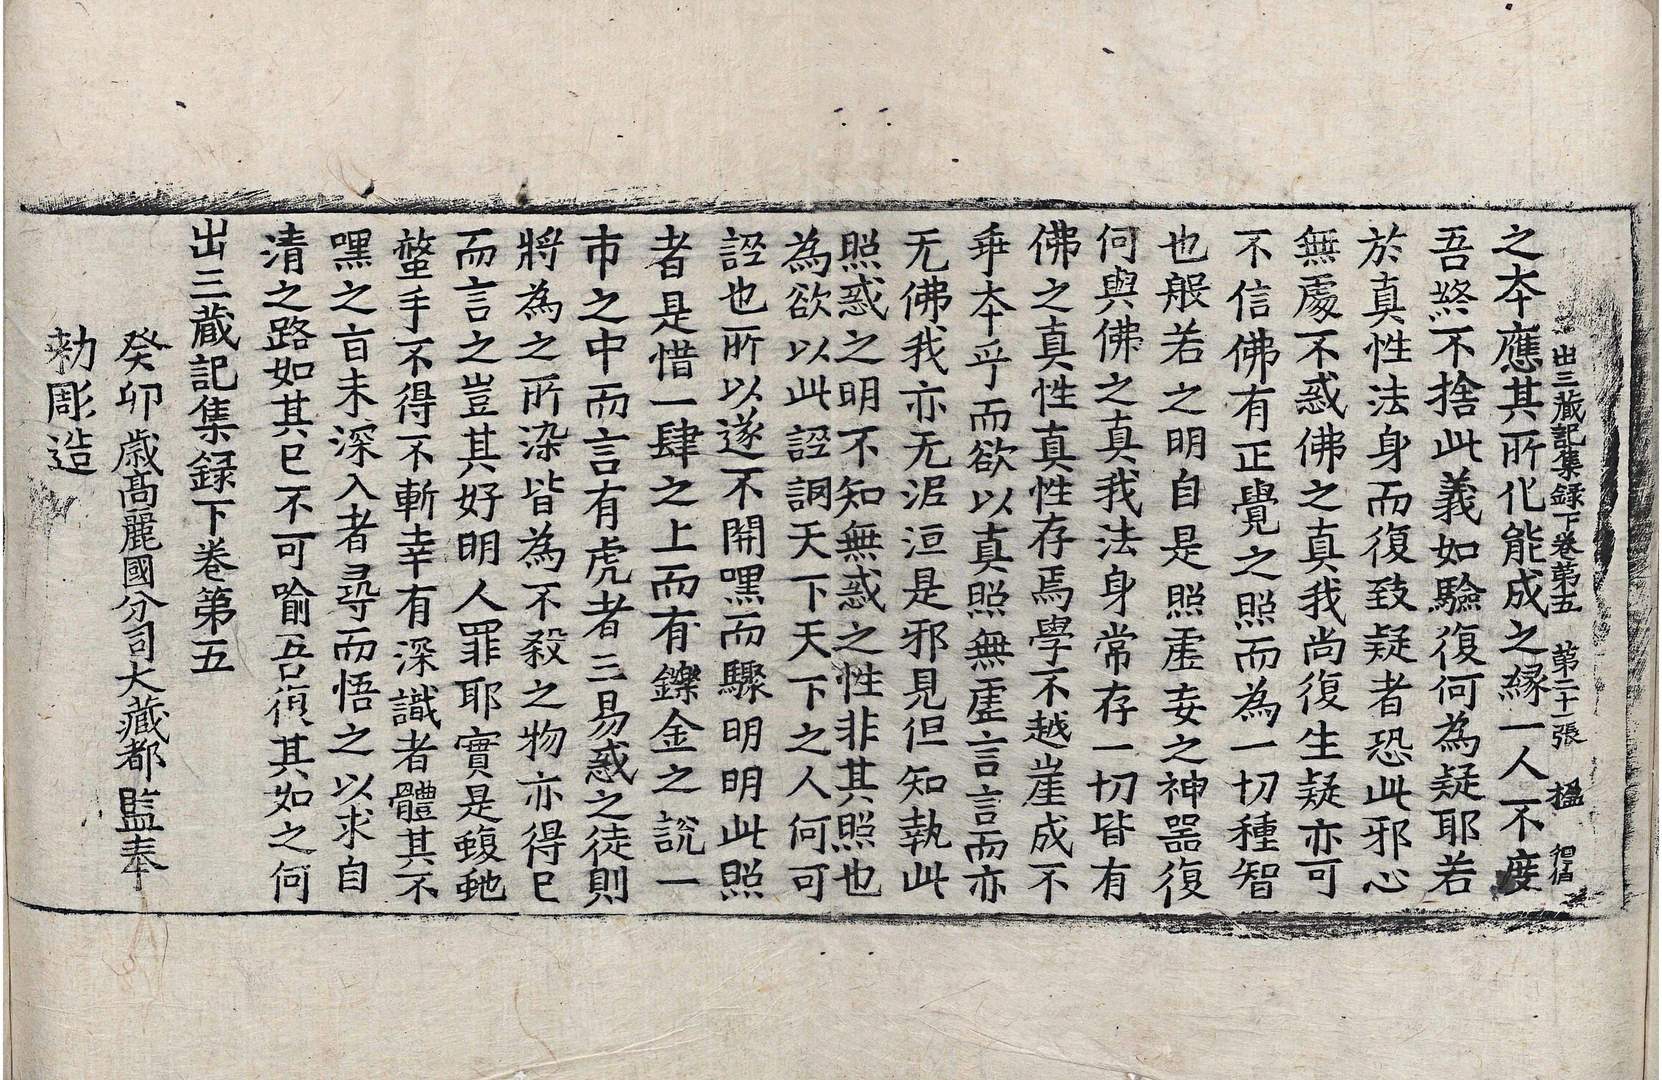 出三藏記集録下卷第五 第二十一張 楹
之本應其所化能成之縁一人不度
吾終不捨此義如驗復何為疑耶若
於真性法身而復致疑者恐此邪心
無處不惑佛之真我尚復生疑亦可
不信佛有正覺之照而為一切種智
也般若之明自是照虛妄之神器復
何與佛之真我法身常存一切皆有
佛之真性真性存焉學不越崖成不
乖本乎而欲以真照無虛言言而亦
无佛我亦无泥洹是邪見但知執此
照惑之明不知無惑之性非其照也
為欲以此誑詷天下天下之人何可
誑也所以遂不開嘿而驟明明此照
者是惜一肆之上而有鑠金之說一
市之中而言有虎者三易惑之徒則
將為之所染皆為不殺之物亦得已
而言之豈其好明人罪耶實是蝮虵
螫手不得不斬幸有深識者體其不
嘿之旨未深入者尋而悟之以求自
清之路如其已不可喻吾復其如之何
出三藏記集録下卷第五
癸卯歲髙麗國分司大藏都監奉
勅彫造